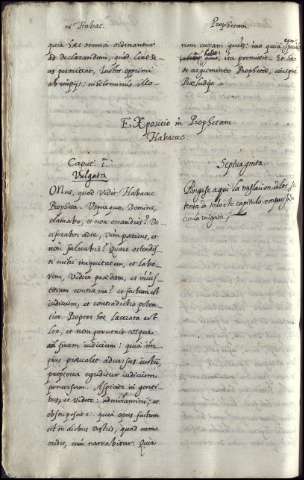 in Habac.
Prophetam.
quia Ex omnia ordinantur
Et declarandum, quod licet
permittat, Justos opprimi
ab impijs, nihilominus illo-
non curam
promittit. Et
de argumento Prophetæ,
Prologo.
EXpositio in Prophetam
Habacuc.
Caput 1.
Vulgata
Onus, quod vidit Habacuc
Propheta. Usquequo, Domine,
clamabo, et non exaudies? Vo-
ciferabor ad te, vim patiens, et
non salvabis? Quare ostendis-
ti mihi iniquitatem, et labo-
rem, videre prædam, et iniusti-
contra me? et factum est
iudicium, et contradictio poten-
tior. Propter hoc lacerata est
lex, et non pervenit usque
ad finem iudicium: quia im-
pius prævalet adversus iustum,
propterea egreditur iudicium
perversum. Aspicite in genti-
bus, et videte: admiramini, et
obstupescite: quia opus factum
est in diebus vestris, quod nemo
credet, cum narrabitur. Quia
Septuaginta.
Pongase aqui la traslacion
de este capitulo
la vulgata